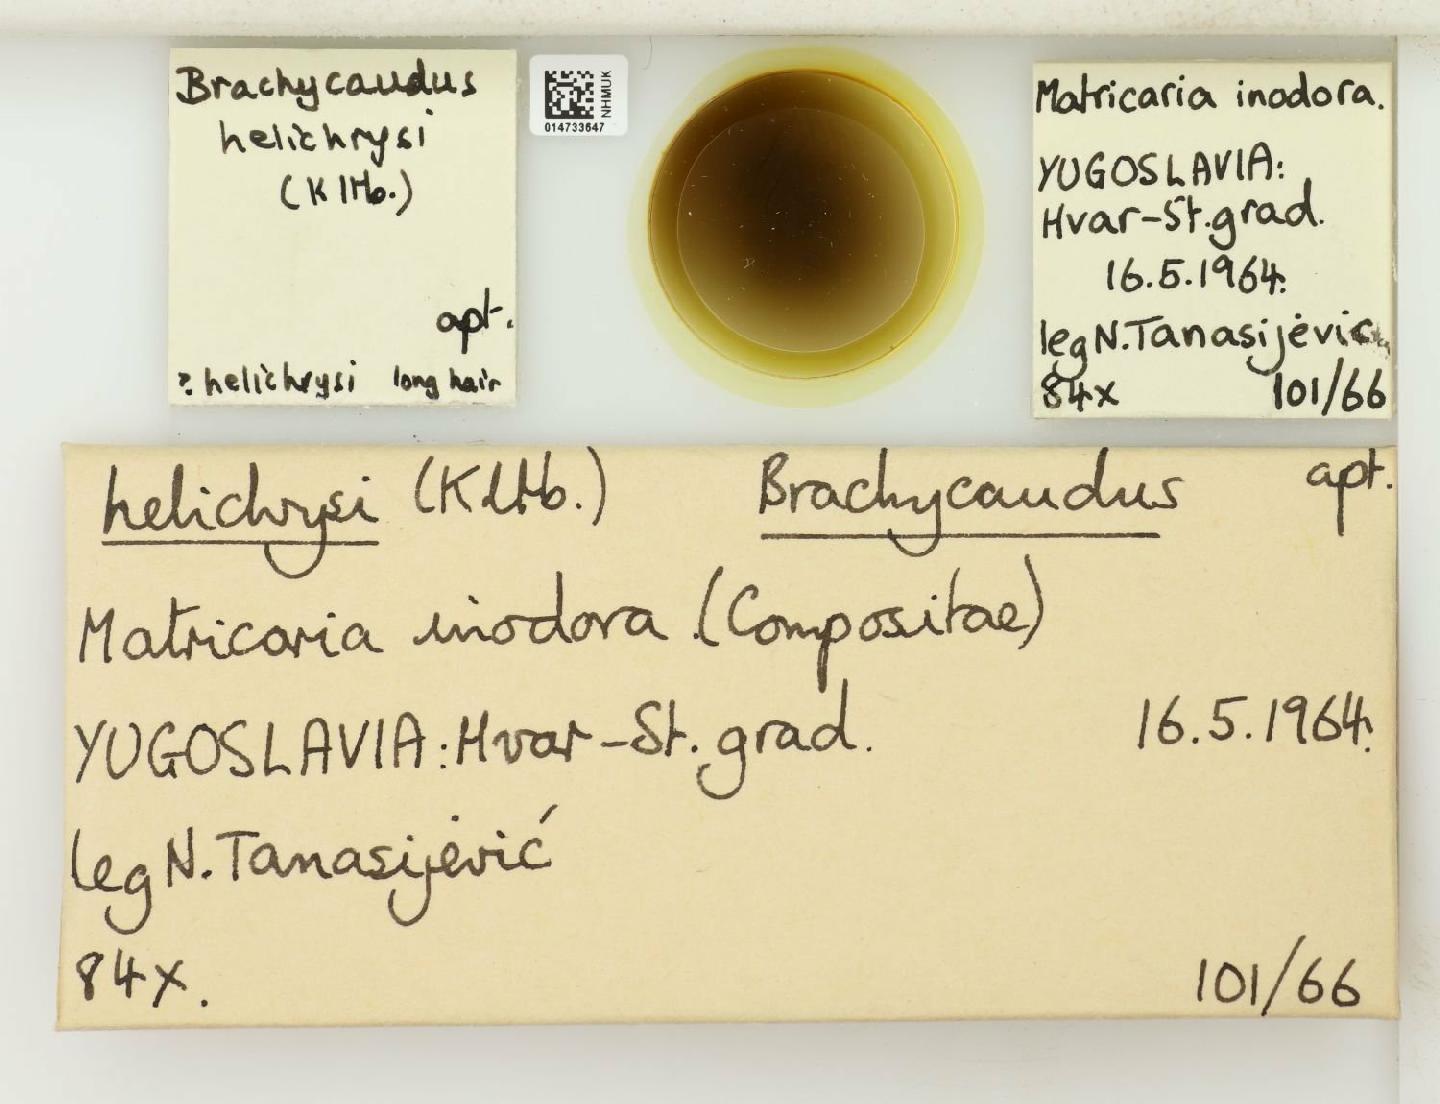 Brachycaudus
helichrysi
(Kltb.)
apt.
? helichrysi long hair
NHMUK
014733647
Matricaria inodora.
YUGOSLAVIA:
Hvar-St.grad.
16.5.1964.
leg N.Tanasijević
84x 101/66
helichrysi (Kltb.) Brachycaudus apt.
Matricaria inodora (Compositae)
YUGOSLAVIA: Hvar-St.grad. 16.5.1964.
leg N. Tanasijević
84x. 101/66